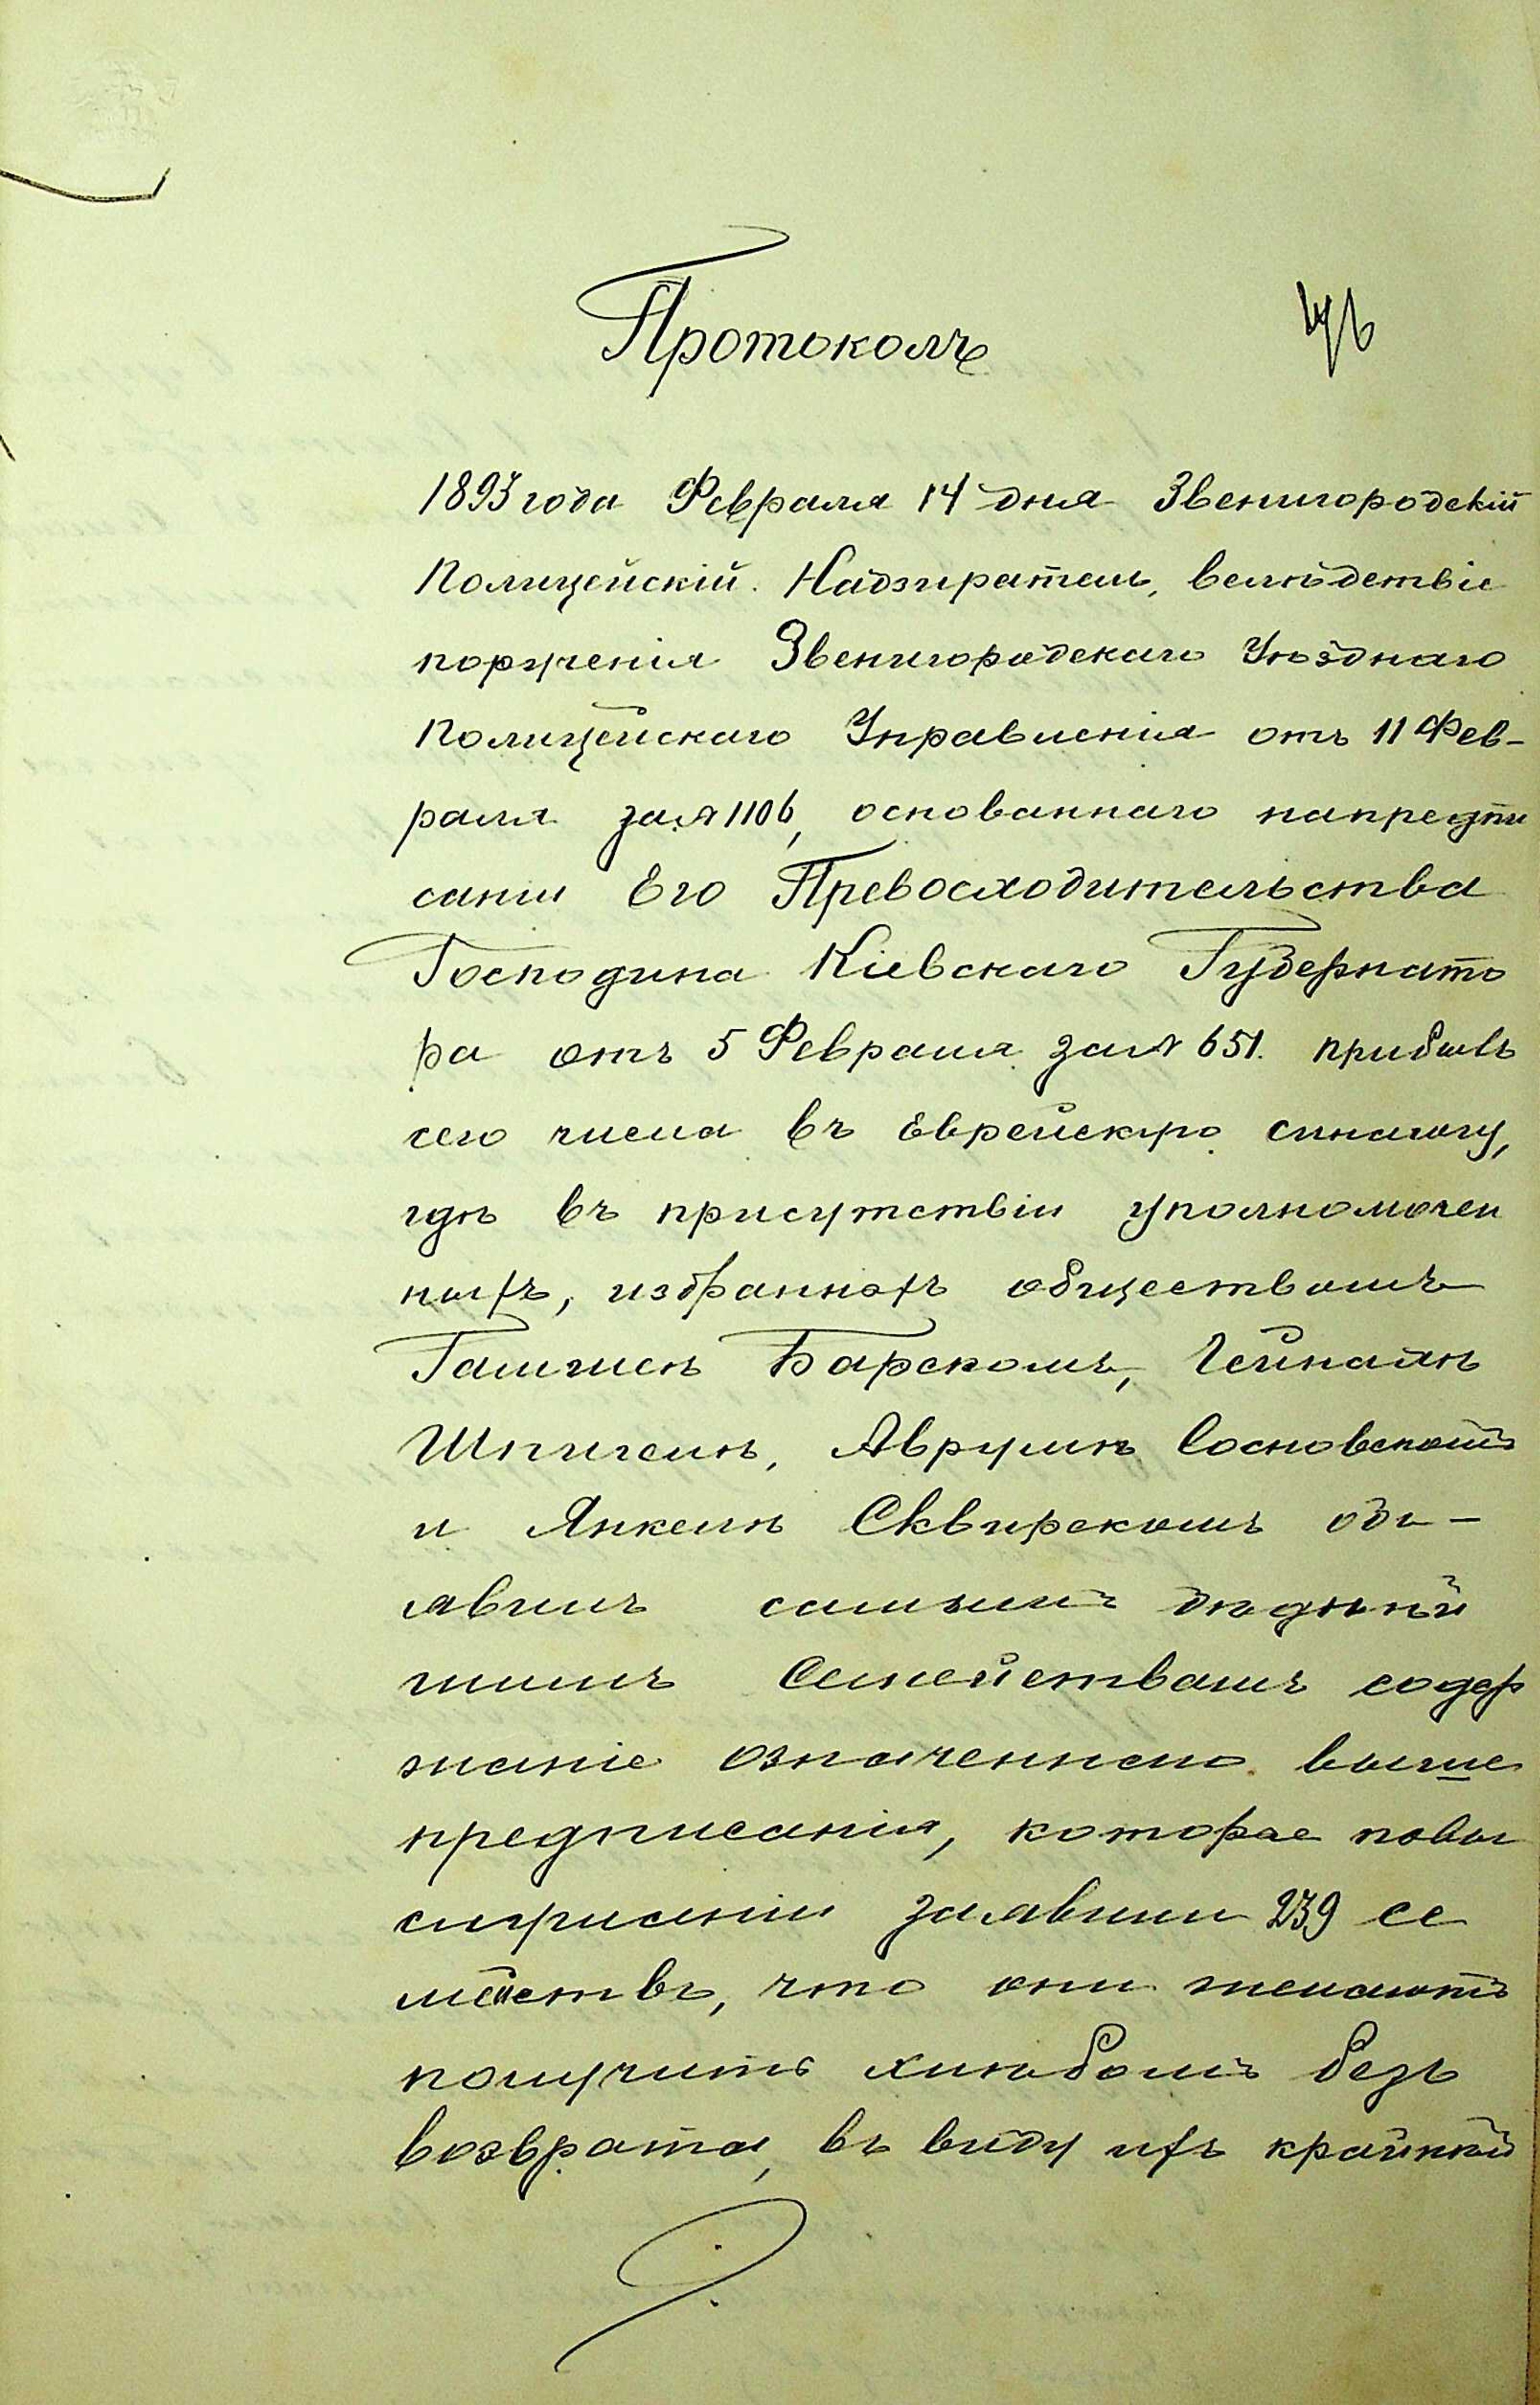 Протоколъ
46
1893 года Февраля 14 дня Звенигородскій
Полицейскій Надзиратель, вслѣдствіе
порученія Звенигородскаго Уѣзднаго
Полицейскаго Управленія отъ 11 Фев-
раля за № 1106, основаннаго на предпи
саніи Его Превосходительства
Господина Кіевскаго Губернато
ра отъ 5 Февраля за № 651. прибывъ
сего числа въ Еврейскую синагогу,
гдѣ въ присутствіи уполномочен
ныхъ, избранныхъ обществомъ
Барскомъ, Гейналѣ
Шпигелѣ, Аврумѣ Сосновскомъ
и Янкелѣ Сквирскомъ объ-
явилъ самымъ бѣднѣй
шимъ семействамъ содер
жаніе означеннаго выше
предписанія, которое повы
слушаніи заявили 239 се
мействъ, что они желаютъ
получить хлѣбомъ безъ
возврата, въ виду ихъ крайней